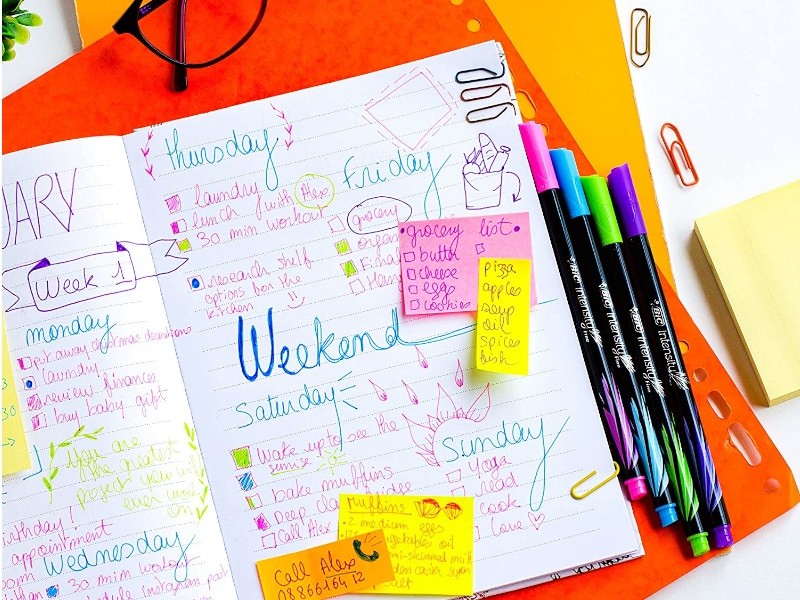 UARY
Week 1
monday
put away christmas decorations
laundry
review finances
buy baby gift
You are
the greatest
project you will
ever work
on
birthday!
appointment
Wednesday
30 min workout
schedule instagram post
thursday
laundry
lunch with Alex
30 min workout
research shelf
options for the
kitchen
Friday
grocery
Weekend
Saturday
Wake up to see the
sunrise
bake muffins
Deep
Call Alex
Sunday
Yoga
read
cook
love
grocery list
butter
cheese
eggs
cookies
pizza
apples
soup
oil
spices
fish
Muffins
2 medium eggs
vegetables oil
semi-skimmed milk
golden caster sugar
salt
Call Alex
08866164 12
BIC Intensity
BIC Intensity
BIC Intensity
BIC Intensity